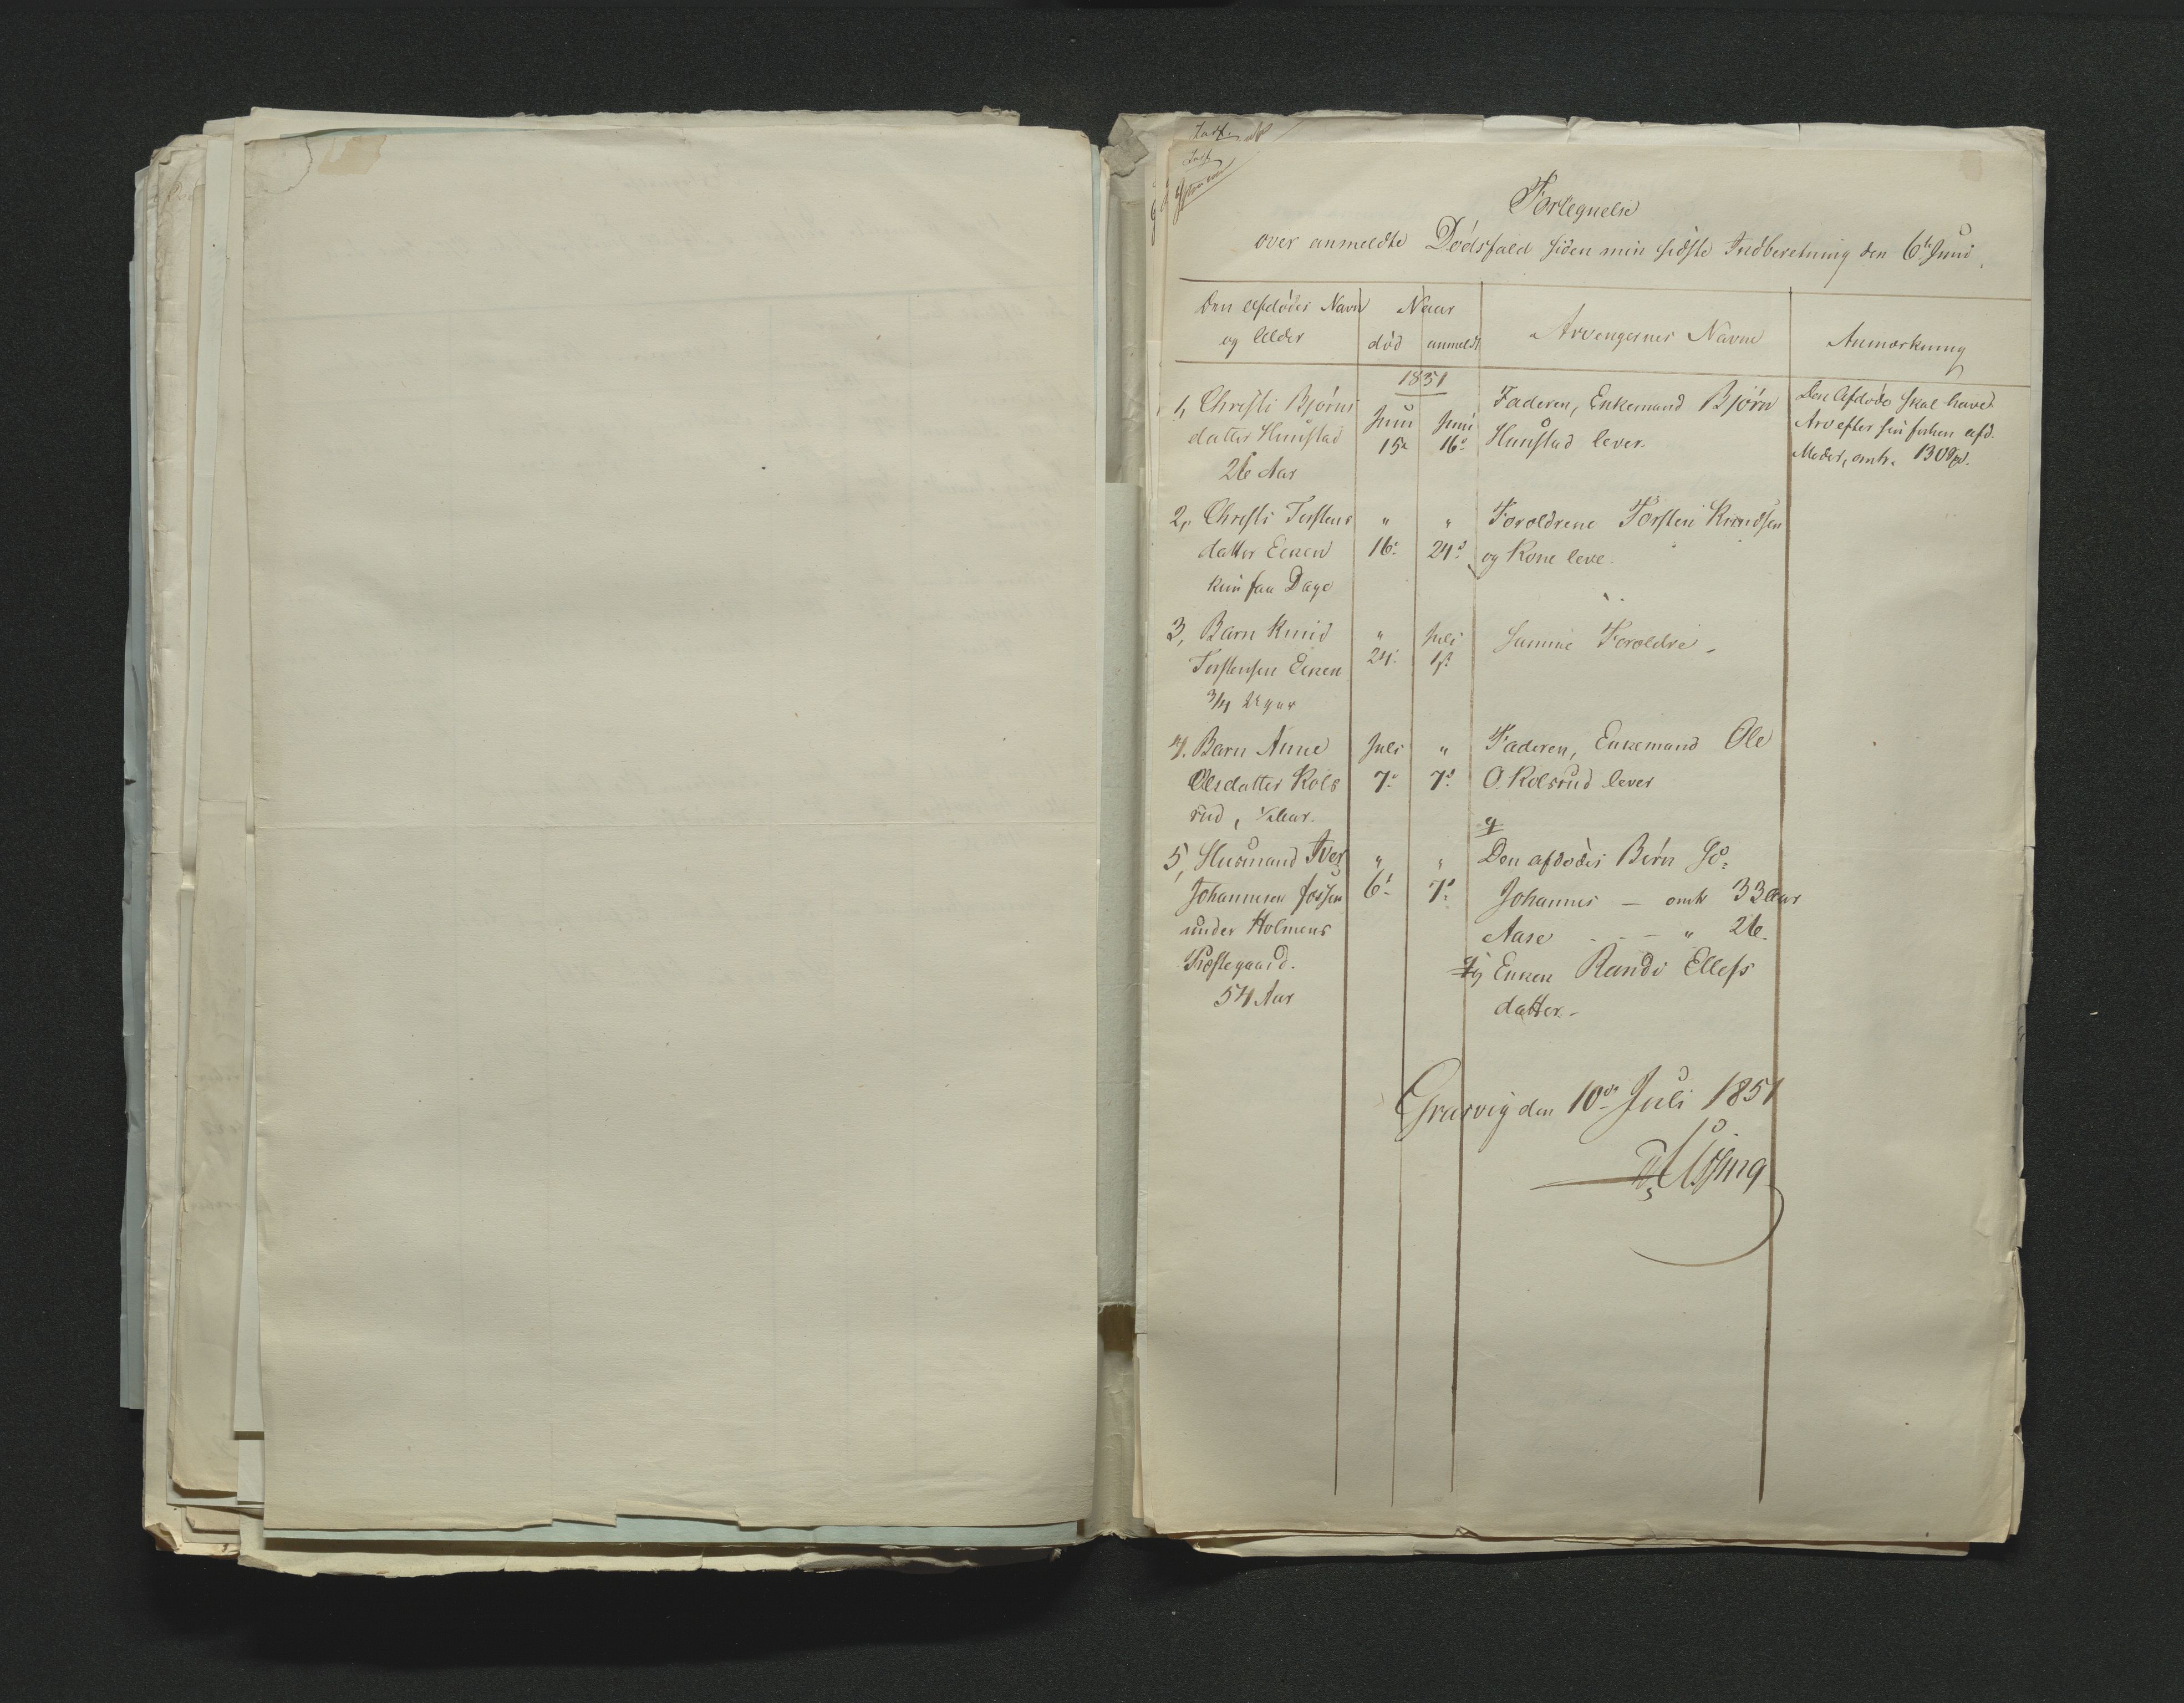 Fortegnelse
over anmeldte Dødsfald siden min sidste Indberetning den 6te Juni
Den Afdødes Navn og Alder
Naar
død
anmeldt
Arvengernes Navne
Anmærkning
1851
1, Christi Bjørns
datter Hunstad
26 Aar
Juni
15de
Juni
16de
Faderen, Enkemand Bjørn
Hunstad lever.
Den Afdøde skal havet
Arv efter sin forhen afd.
Moder, omtr. 130 Spd.
2, Christi Torstens
datter Eeken
kun faa Dage
"
16de
"
24de
Forældrene Torsten Knudsen
og Kone leve.
3, Barn Knud
Torstensen Eeken
3/4 Aar
"
24.
Juli
1ste
Samme Forældre -
4. Barn Anne
Olsdatter Kols
rud, 1/2 Aar.
Juli
7de
"
7de
Faderen, Enkemand Ole
O. Kolsrud lever
5, Husmand Iver
Johannesen Fossen
under Holmens
Præstegaard.
54 Aar
"
6te
"
7de
Den afdødes Børn
Johannes — omtr 33 Aar
Aase - - - " 26.
Enken Randi Ellefs
datter. -
Grasvig den 10de Juli 1851
Ussing